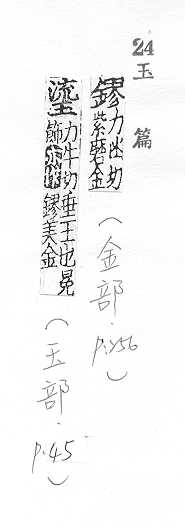 24
玉篇
鏐力幽切
紫磨金
(金部.p.256)
瑬力牛切垂玉也冕
飾鏐美金
(玉部.p.45)